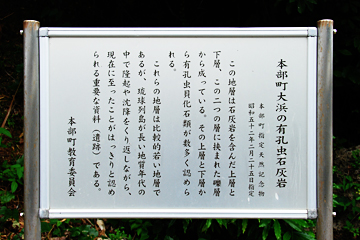 本部町大浜の有孔虫石灰岩
本部町指定天然記念物
昭和五十二年二月二十五日指定
この地層は石灰岩を含んだ上層と
下層、この二つの層に挟まれた礫層
から成っている。その上層と下層か
ら有孔虫貝化石類が数多く認めら
れる。
これらの地層は比較的若い地層で
あるが、琉球列島が長い地質年代の
中で隆起や沈降をくり返しながら、
現在に至ったことがはっきりと認め
られる重要な資料（遺跡）である。
本部町教育委員会